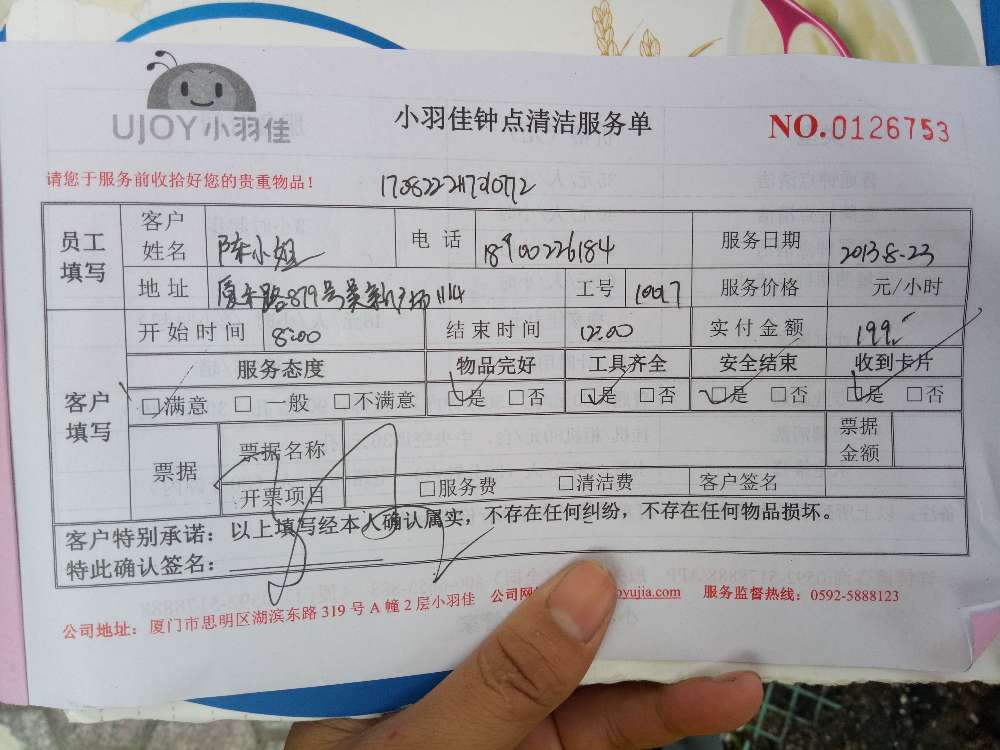 UJOY小羽佳
小羽佳钟点清洁服务单
NO.0126753
请您于服务前收拾好您的贵重物品!
员工填写 客户姓名 陈小姐 电话 18900226184 服务日期 2013.8.23
地址 工号 10097 服务价格 元/小时
客户填写 开始时间 8:00 结束时间 12:00 实付金额 199
服务态度 物品完好 工具齐全 安全结束 收到卡片
□满意 □一般 □不满意 □是 □否 □是 □否 □是 □否 □是 □否
票据 票据名称 票据金额
开票项目 □服务费 □清洁费 客户签名
客户特别承诺:以上填写经本人确认属实,不存在任何纠纷,不存在任何物品损坏。
特此确认签名:
公司地址:厦门市思明区湖滨东路319号A幢2层小羽佳 公司网 oyujia.com 服务监督热线:0592-5888123